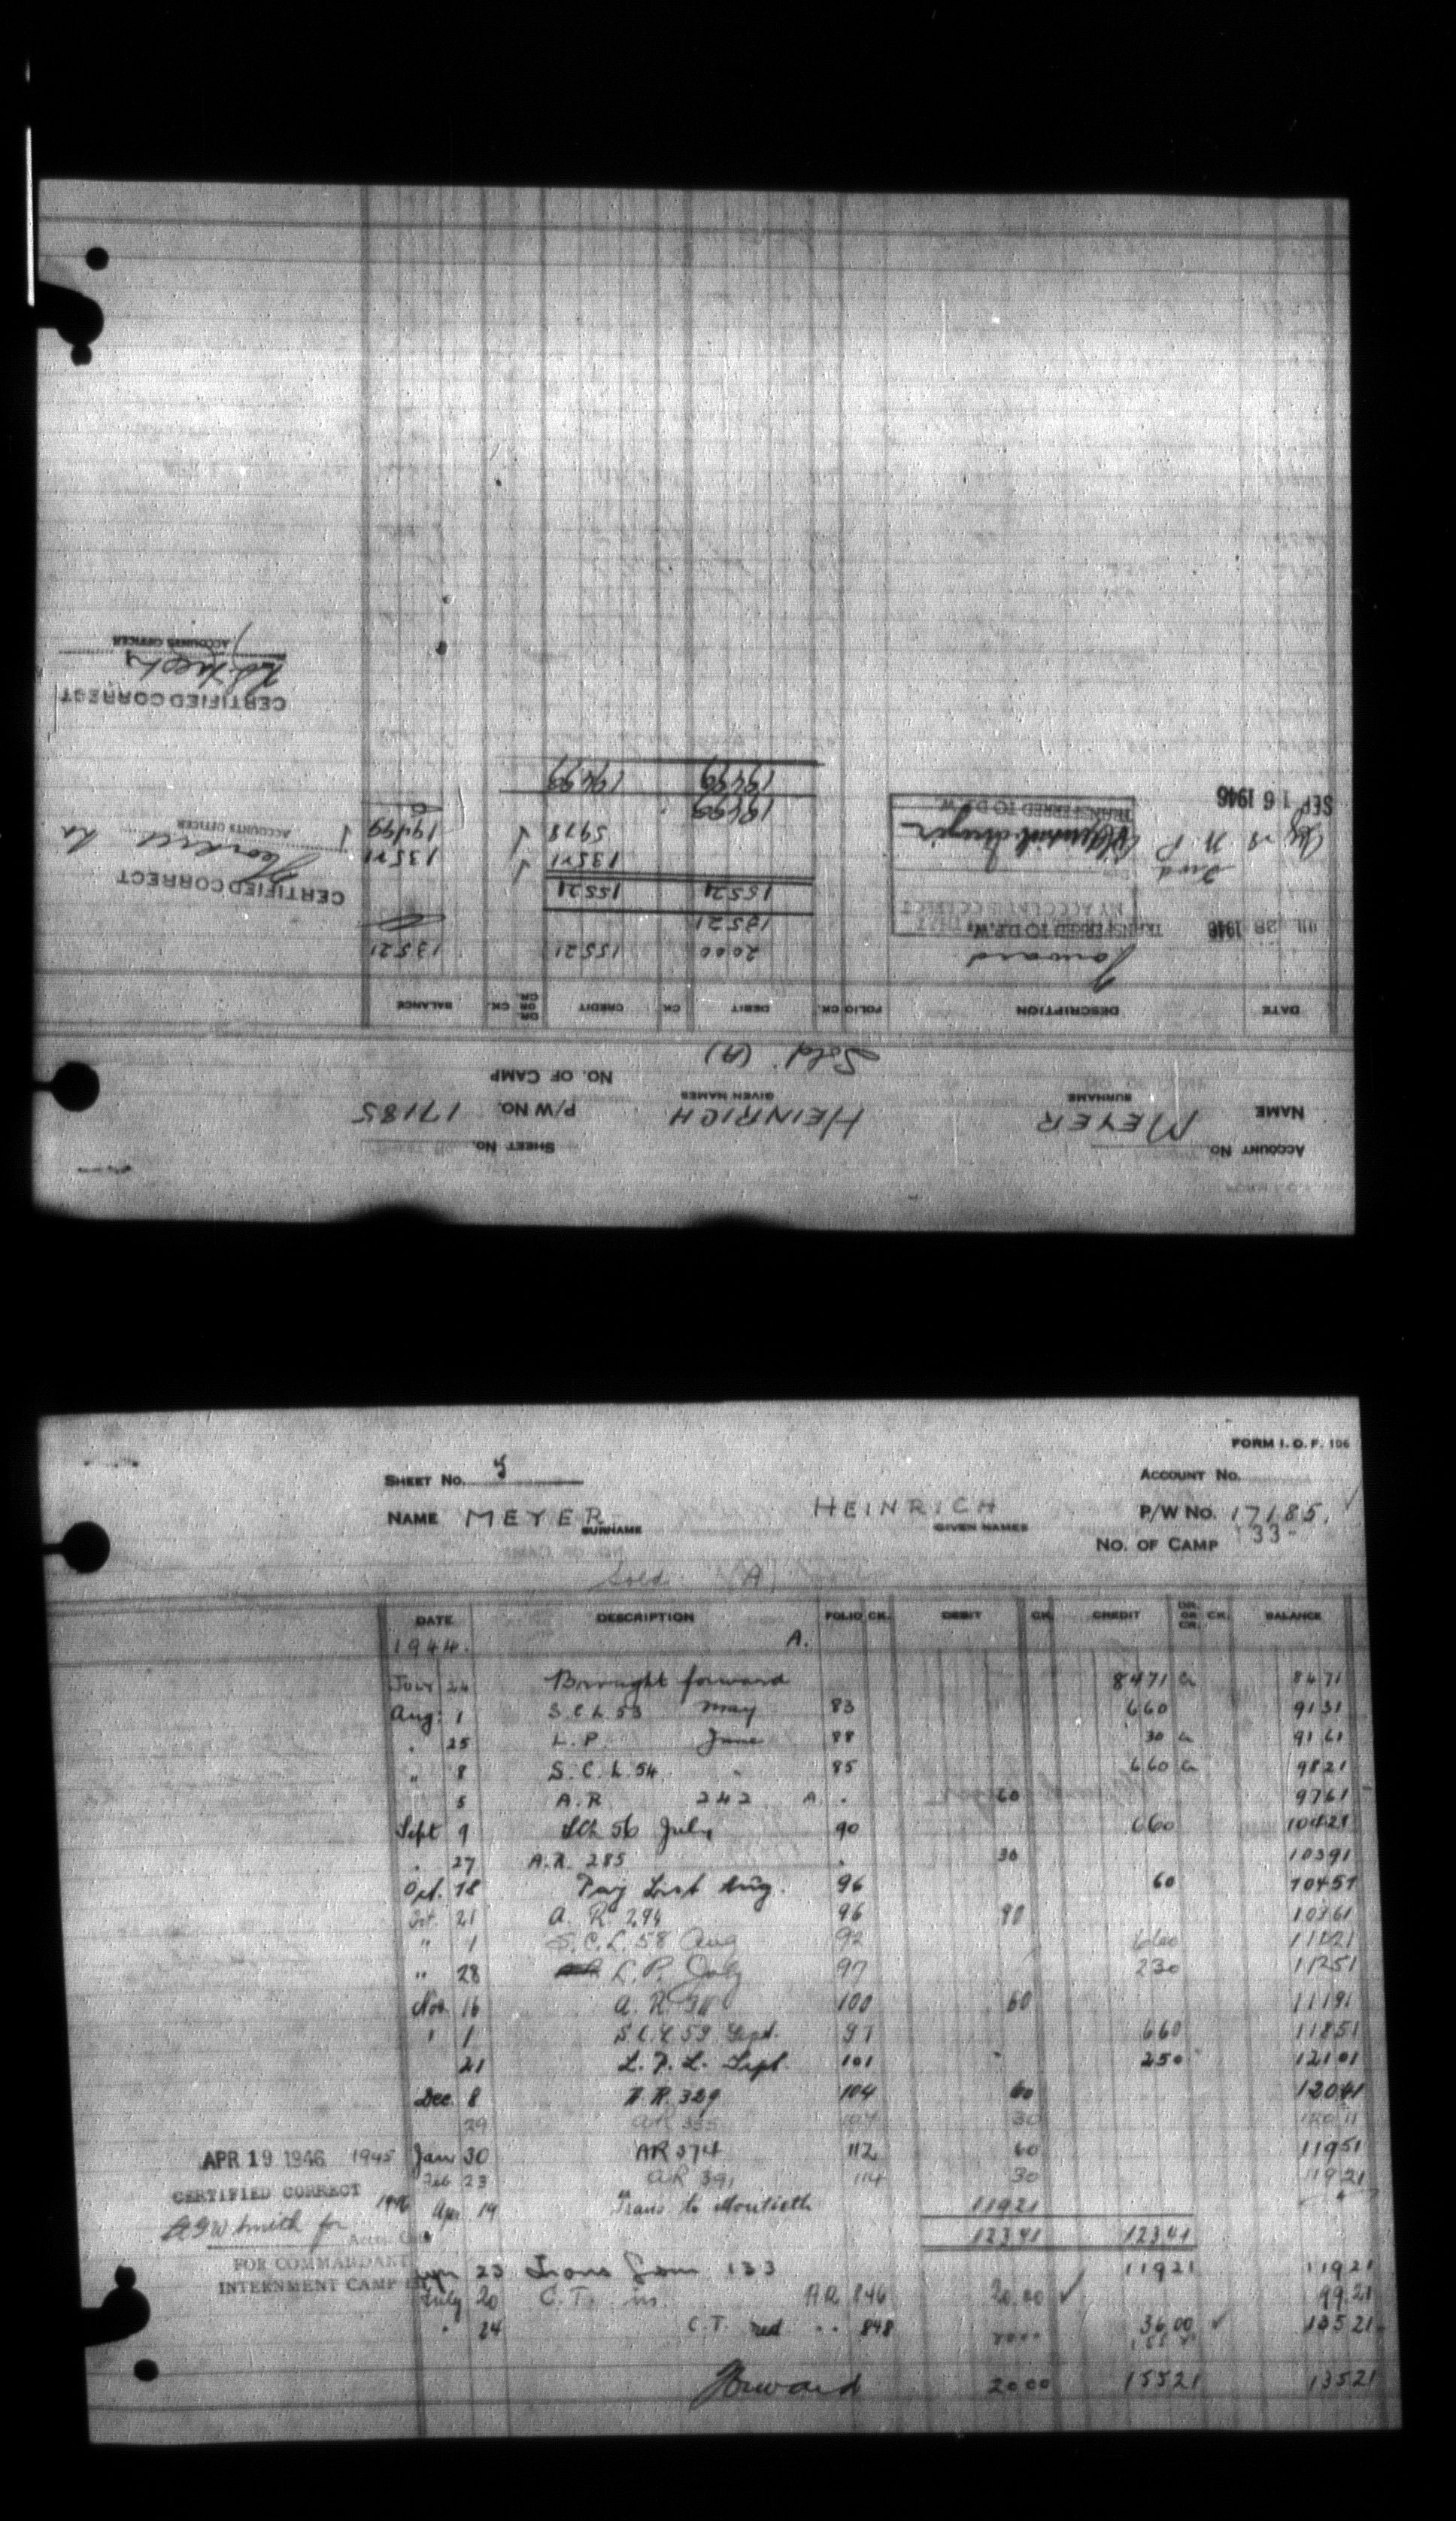 ACCOUNT No. SHEET No.
NAME MEYER HEINRICH P/W No. 17185
SURNAME GIVEN NAMES
NO. OF CAMP
Sold. (A)
DATE DESCRIPTION FOLIO CK. DEBIT CK CREDIT DR. OR CR. CK. BALANCE
Forward 2000 15521 13521
JUL 28 1946 TRANSFERRED TO D.P.W. 13521
MY ACCOUNT IS CORRECT
15521 15521
13521 13521
5978 19499
SEP 16 1946 19499
TRANSFERRED TO D.P.W.
19499 19499
CERTIFIED CORRECT
ACCOUNTS OFFICER
CERTIFIED CORRECT
ACCOUNTS OFFICER
FORM I. O. F. 106
SHEET No. 5 ACCOUNT No.
NAME MEYER HEINRICH P/W No. 17185.
SURNAME GIVEN NAMES
NO. OF CAMP 133
Sold (A)
DATE DESCRIPTION FOLIO CK. DEBIT CK. CREDIT DR. OR CR. CK. BALANCE
1944. A.
24 Brought forward 8471 Cr 8471
Aug. 1 S.C.L. 53 May 83 660 9131
" 25 L.P. June 88 30 Cr 9161
" 8 S.C.L. 54 " 85 660 Cr 9821
5 A.R. 242 A. 60 9761
Sept 9 SCL 56 July 90 660 10421
" 27 A.R. 285 30 10391
Oct. 18 Pay List Aug. 96 60 10451
Oct. 21 A. R. 294 96 90 10361
" 1 S.C.L. 58 Aug 92 660 11021
" 28 L.P. July 97 230 11251
Nov. 16 A. R. 60 100 11191
" 1 S.C.L. 59 Sept. 97 660 11851
21 L.P.L. Sept. 101 250 12101
Dec. 8 A.R. 329 104 60 12041
29 AR 355 107 30 12011
APR 19 1946 1945 Jan 30 AR 374 112 60 11951
Feb 23 AR 391 114 30 11921
CERTIFIED CORRECT
1946 Apr. 19 Trans to Monteith 11921
AGW Smith for
12341 12341
FOR COMMANDANT
INTERNMENT CAMP
23 Trans from 133 11921 11921
July 20 C.T. in. AR 846 20.00 99.21
" 24 C.T. red " " 848 36.00 13521
Forward 2000 15521 13521